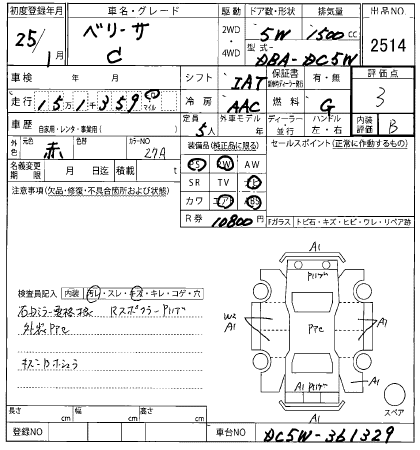 初度登録年月 車名・グレード 駆動 ドア数・形状 排気量 出品NO
25年 1月 ベリーサ C 2WD・4WD 5W 1500cc 2514
型式 DBA-DC5W
車検 年 月 シフト IAT 保証書 有・無 評価点 3
走行 15万1千359 マイル 冷房 AAC 燃料 G
車歴 自家用・レンタ・事業用( ) 定員 5人 外車モデル 年 ディーラー・並行 ハンドル 左・右 内装評価 B
外色 元色 赤 色替 カラーNO 27A
装備品(純正品に限る) セールスポイント(正常に作動するもの)
名義変更期限 月 日迄 積載 t
PS PW AW
注意事項(欠品・修復・不具合箇所および状態)
SR TV ナビ
カワ エアB ABS
R券 10800円
Fガラス トビ石・キズ・ヒビ・ワレ・リペア跡
検査員記入 内装 汚レ・スレ・キズ・キレ・コゲ・穴
外装Pたて
A1
W2
A1
A1
A1
A1
スペア
長さ cm 幅 cm 高さ cm
登録NO 車台NO DC5W-361329